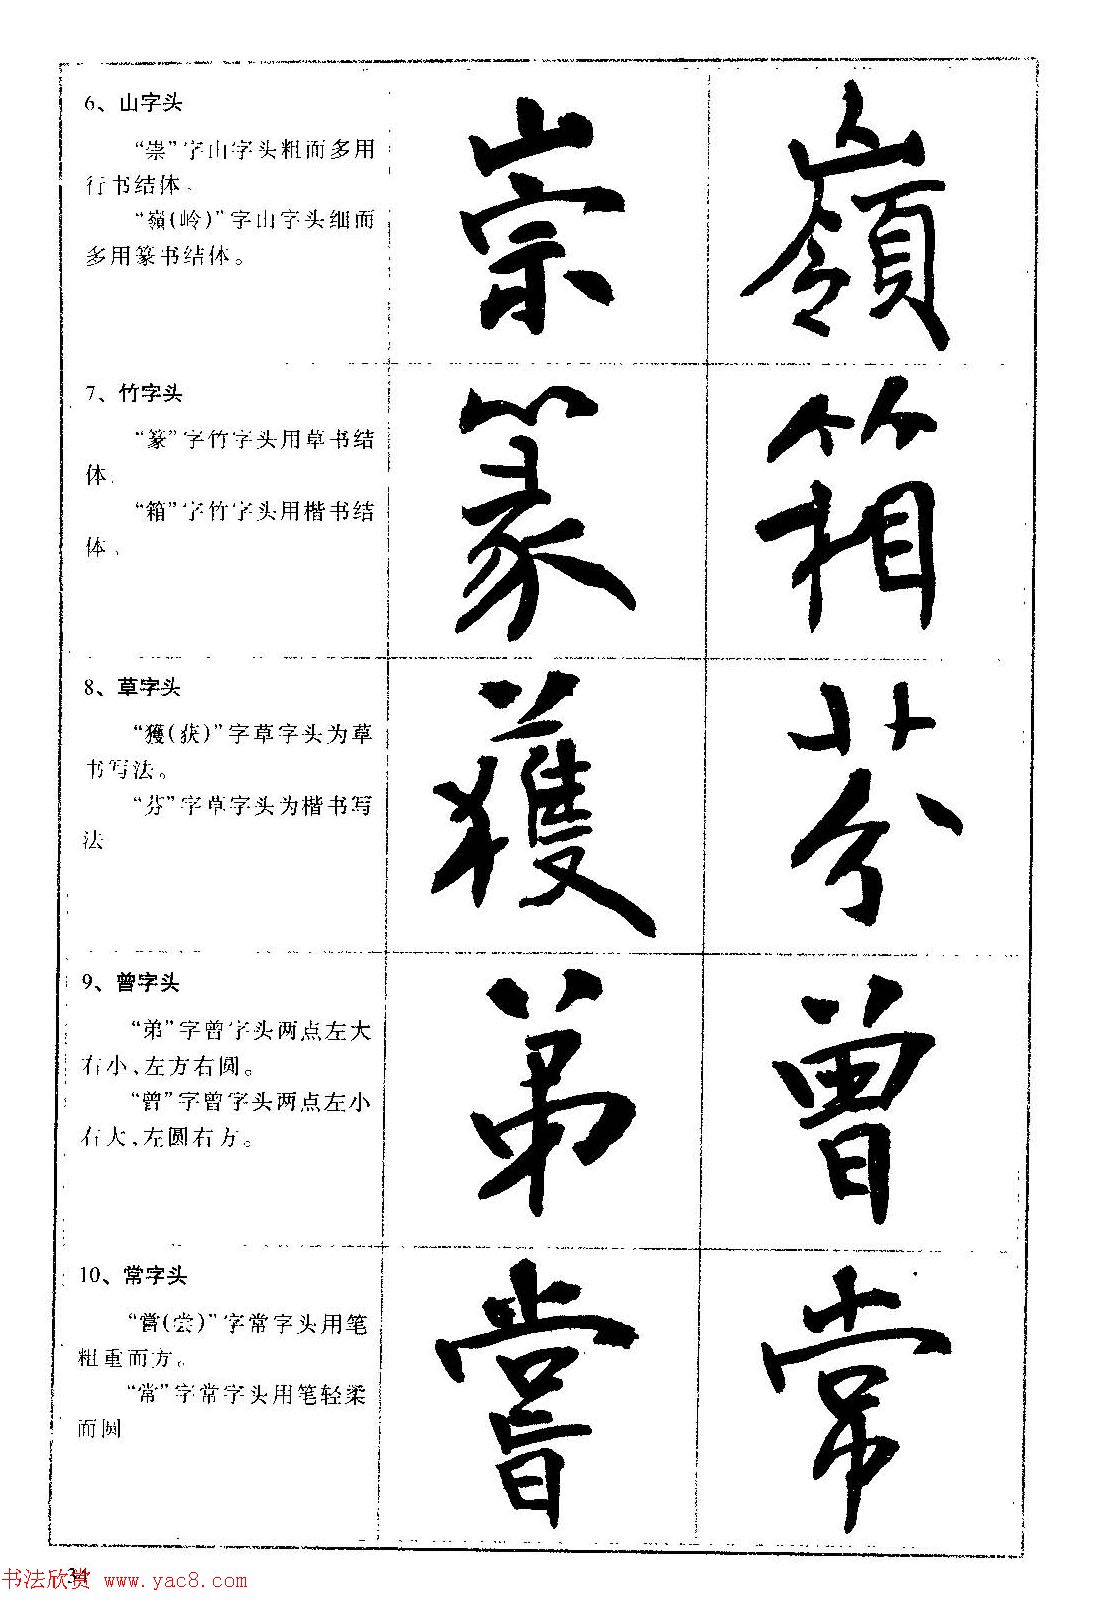 6、山字头
“崇”字山字头粗而多用
行书结体。
“嶺(岭)”字山字头细而
多用篆书结体。
崇 嶺
7、竹字头
“篆”字竹字头用草书结
体。
“箱”字竹字头用楷书结
体。
篆 箱
8、草字头
“獲(获)”字草字头为草
书写法。
“芬”字草字头为楷书写
法
獲 芬
9、曾字头
“弟”字曾字头两点左大
右小、左方右圆。
“曾”字曾字头两点左小
右大、左圆右方。
弟 曾
10、常字头
“嘗(尝)”字常字头用笔
粗重而方。
“常”字常字头用笔轻柔
而圆
嘗 常
34
书法欣赏 www.yac8.com